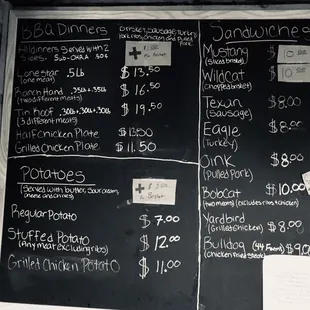 BBQ Dinners
Brisket, Sausage, Turkey
Pork ribs, Chicken and Pulled
Pork
All dinners Served with 2
Sides. Sub-OKRA .50¢
+
Lone star .5lb
(one meat)
$13.50
Ranch Hand .35lb+.35lb
(two different meats)
$16.50
Tin Roof .30lb+.30lb+.30lb
(3 different meats)
$19.50
Half Chicken Plate $13.00
Grilled Chicken Plate $11.50
Potatoes
(Served with butter, sour cream,
cheese and chives)
+
Regular Potato $7.00
Stuffed Potato
(Any meat excluding ribs)
$12.00
Grilled Chicken Potato $11.00
Sandwiches
Mustang
(Sliced brisket)
$10
Wildcat
(Chopped brisket)
$10
Texun
(Sausage)
$8.00
Eagle
(Turkey)
$8.00
Oink
(Pulled Pork)
$8.00
Bobcat
(two meats) (excludes ribs & chicken)
$10.00
Yardbird
(Grilled Chicken)
$8.00
Bulldog (44 Farms)
(Chicken fried steak)
$9.0